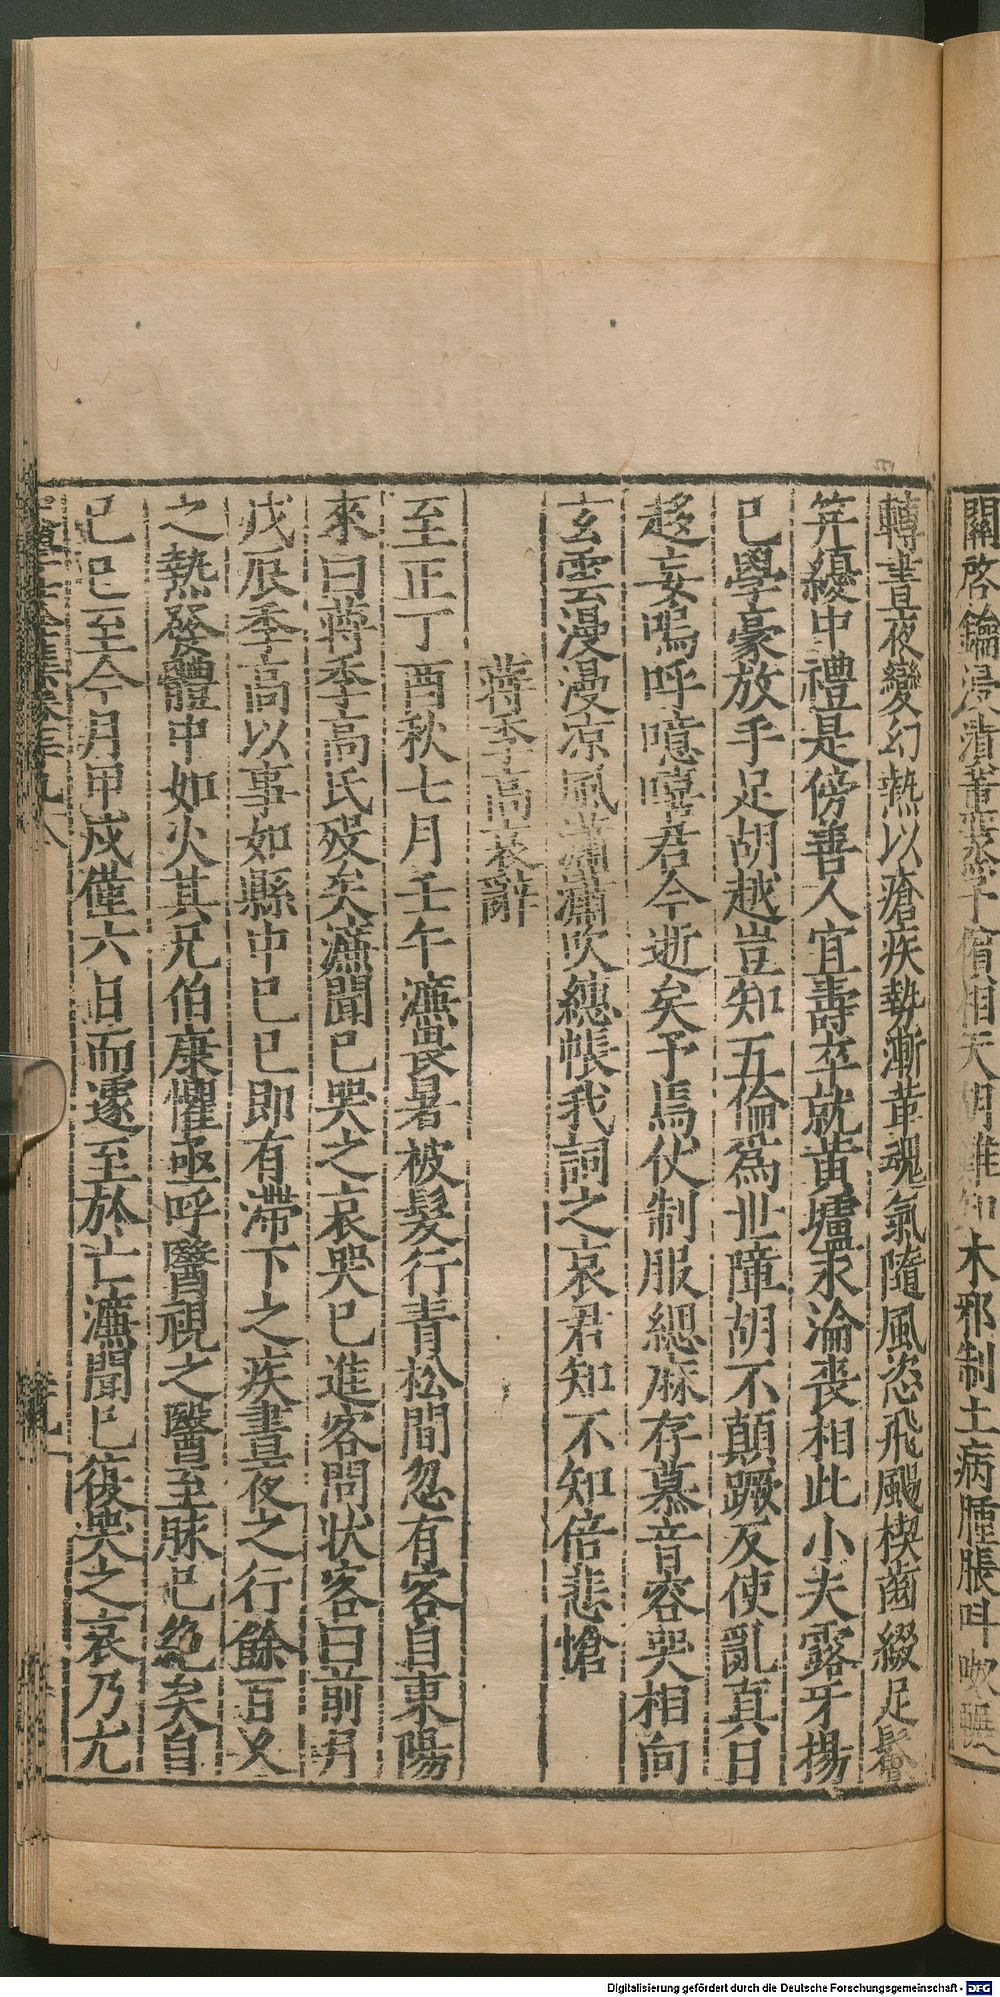 關啓鑰浸漬
木邪制土病腫脹叫
轉晝夜變幻熱以瘡疾勢漸革魂氣隨風恣飛颺楔齒綴足鬠
筓纋中禮是傍善人宜壽卒就黃壚永淪喪相此小夫露牙揚
已學豪放手足胡越豈知五倫爲世障胡不顛蹶反使亂真日
趍妄嗚呼噫嘻君今逝矣予焉仗制服緦麻存慕音容哭相向
玄雲漫漫凉風瀟瀟吹繐帳我詞之哀君知不知倍悲愴
蔣季高哀辭
至正丁酉秋七月壬午濂畏暑被髮行青松間忽有客自東陽
來曰蔣季高氏歿矣濂聞已哭之哀哭已進客問狀客曰前月
戊辰季高以事如縣中已巳即有滯下之疾晝夜之行餘百又
之熱發體中如火其兄伯康懼亟呼醫視之醫至脉已絕矣自
己巳至今月甲戌僅六日而遽至於亡濂聞已復哭之哀乃亢
Digitalisierung gefördert durch die Deutsche Forschungsgemeinschaft - DFG